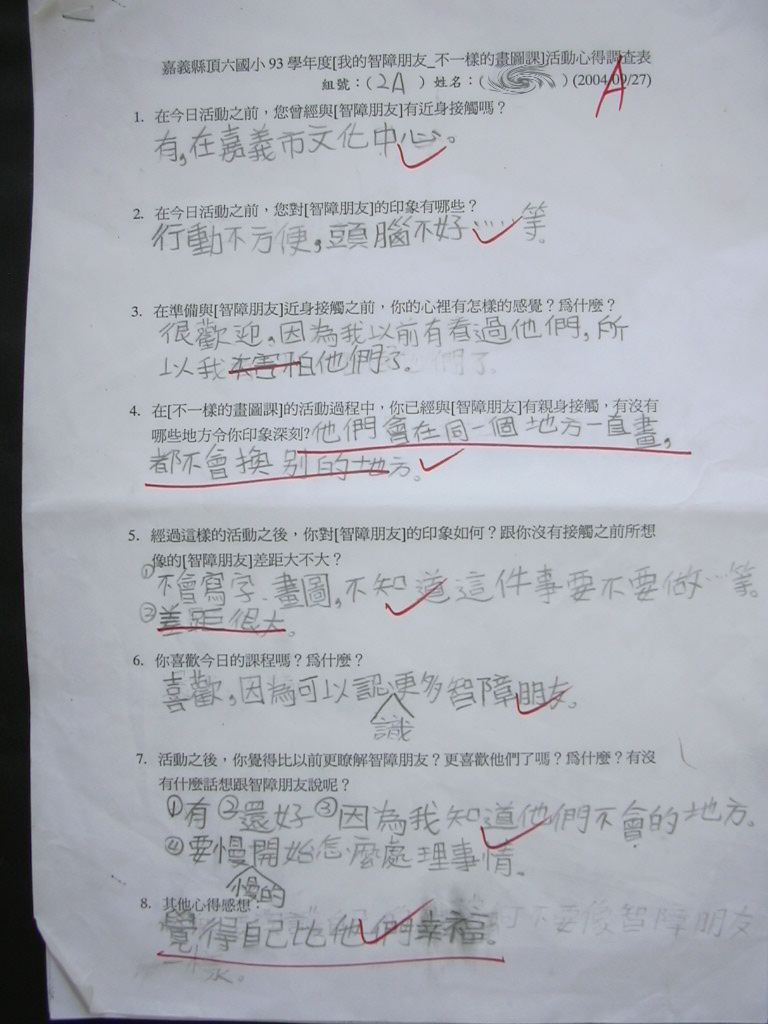 嘉義縣頂六國小93學年度[我的智障朋友_不一樣的畫圖課]活動心得調查表
組號：( 2A ) 姓名：( ) (2004/09/27)
A
1. 在今日活動之前，您曾經與[智障朋友]有近身接觸嗎？
有,在嘉義市文化中心。
2. 在今日活動之前，您對[智障朋友]的印象有哪些？
行動不方便,頭腦不好……等。
3. 在準備與[智障朋友]近身接觸之前，你的心裡有怎樣的感覺？為什麼？
很歡迎,因為我以前有看過他們,所
以我不害怕他們了。
4. 在[不一樣的畫圖課]的活動過程中，你已經與[智障朋友]有親身接觸，有沒有
哪些地方令你印象深刻?他們會在同一個地方一直畫,
都不會換別的地方。
5. 經過這樣的活動之後，你對[智障朋友]的印象如何？跟你沒有接觸之前所想
像的[智障朋友]差距大不大？
①不會寫字、畫圖,不知道這件事要不要做…等。
②差距很大。
6. 你喜歡今日的課程嗎？為什麼？
喜歡,因為可以認更多智障朋友。
識
7. 活動之後，你覺得比以前更瞭解智障朋友？更喜歡他們了嗎？為什麼？有沒
有什麼話想跟智障朋友說呢？
①有②還好③因為我知道他們不會的地方。
④要慢開始怎麼處理事情。
慢的
8. 其他心得感想：
覺得自己比他們幸福。可不要像智障朋友